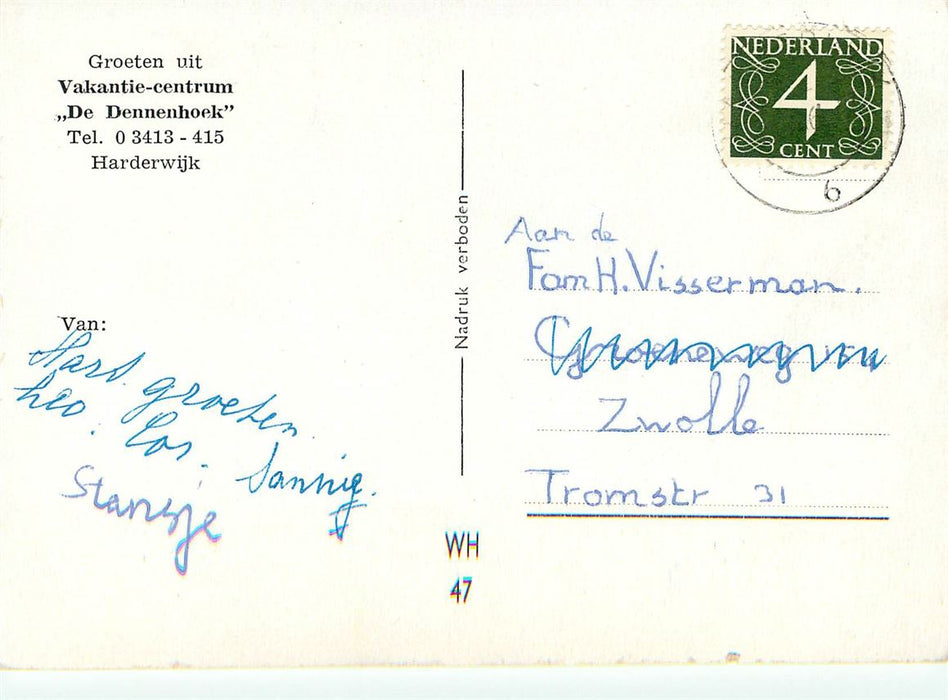 Groeten uit
Vakantie-centrum
„De Dennenhoek”
Tel. 0 3413 - 415
Harderwijk
Van:
Hart. groeten
Leo. Cor.
Stansje
Nadruk verboden
WH
47
NEDERLAND
4
CENT
6
Aan de
Fam H. Visserman.
Zwolle
Tromstr 31